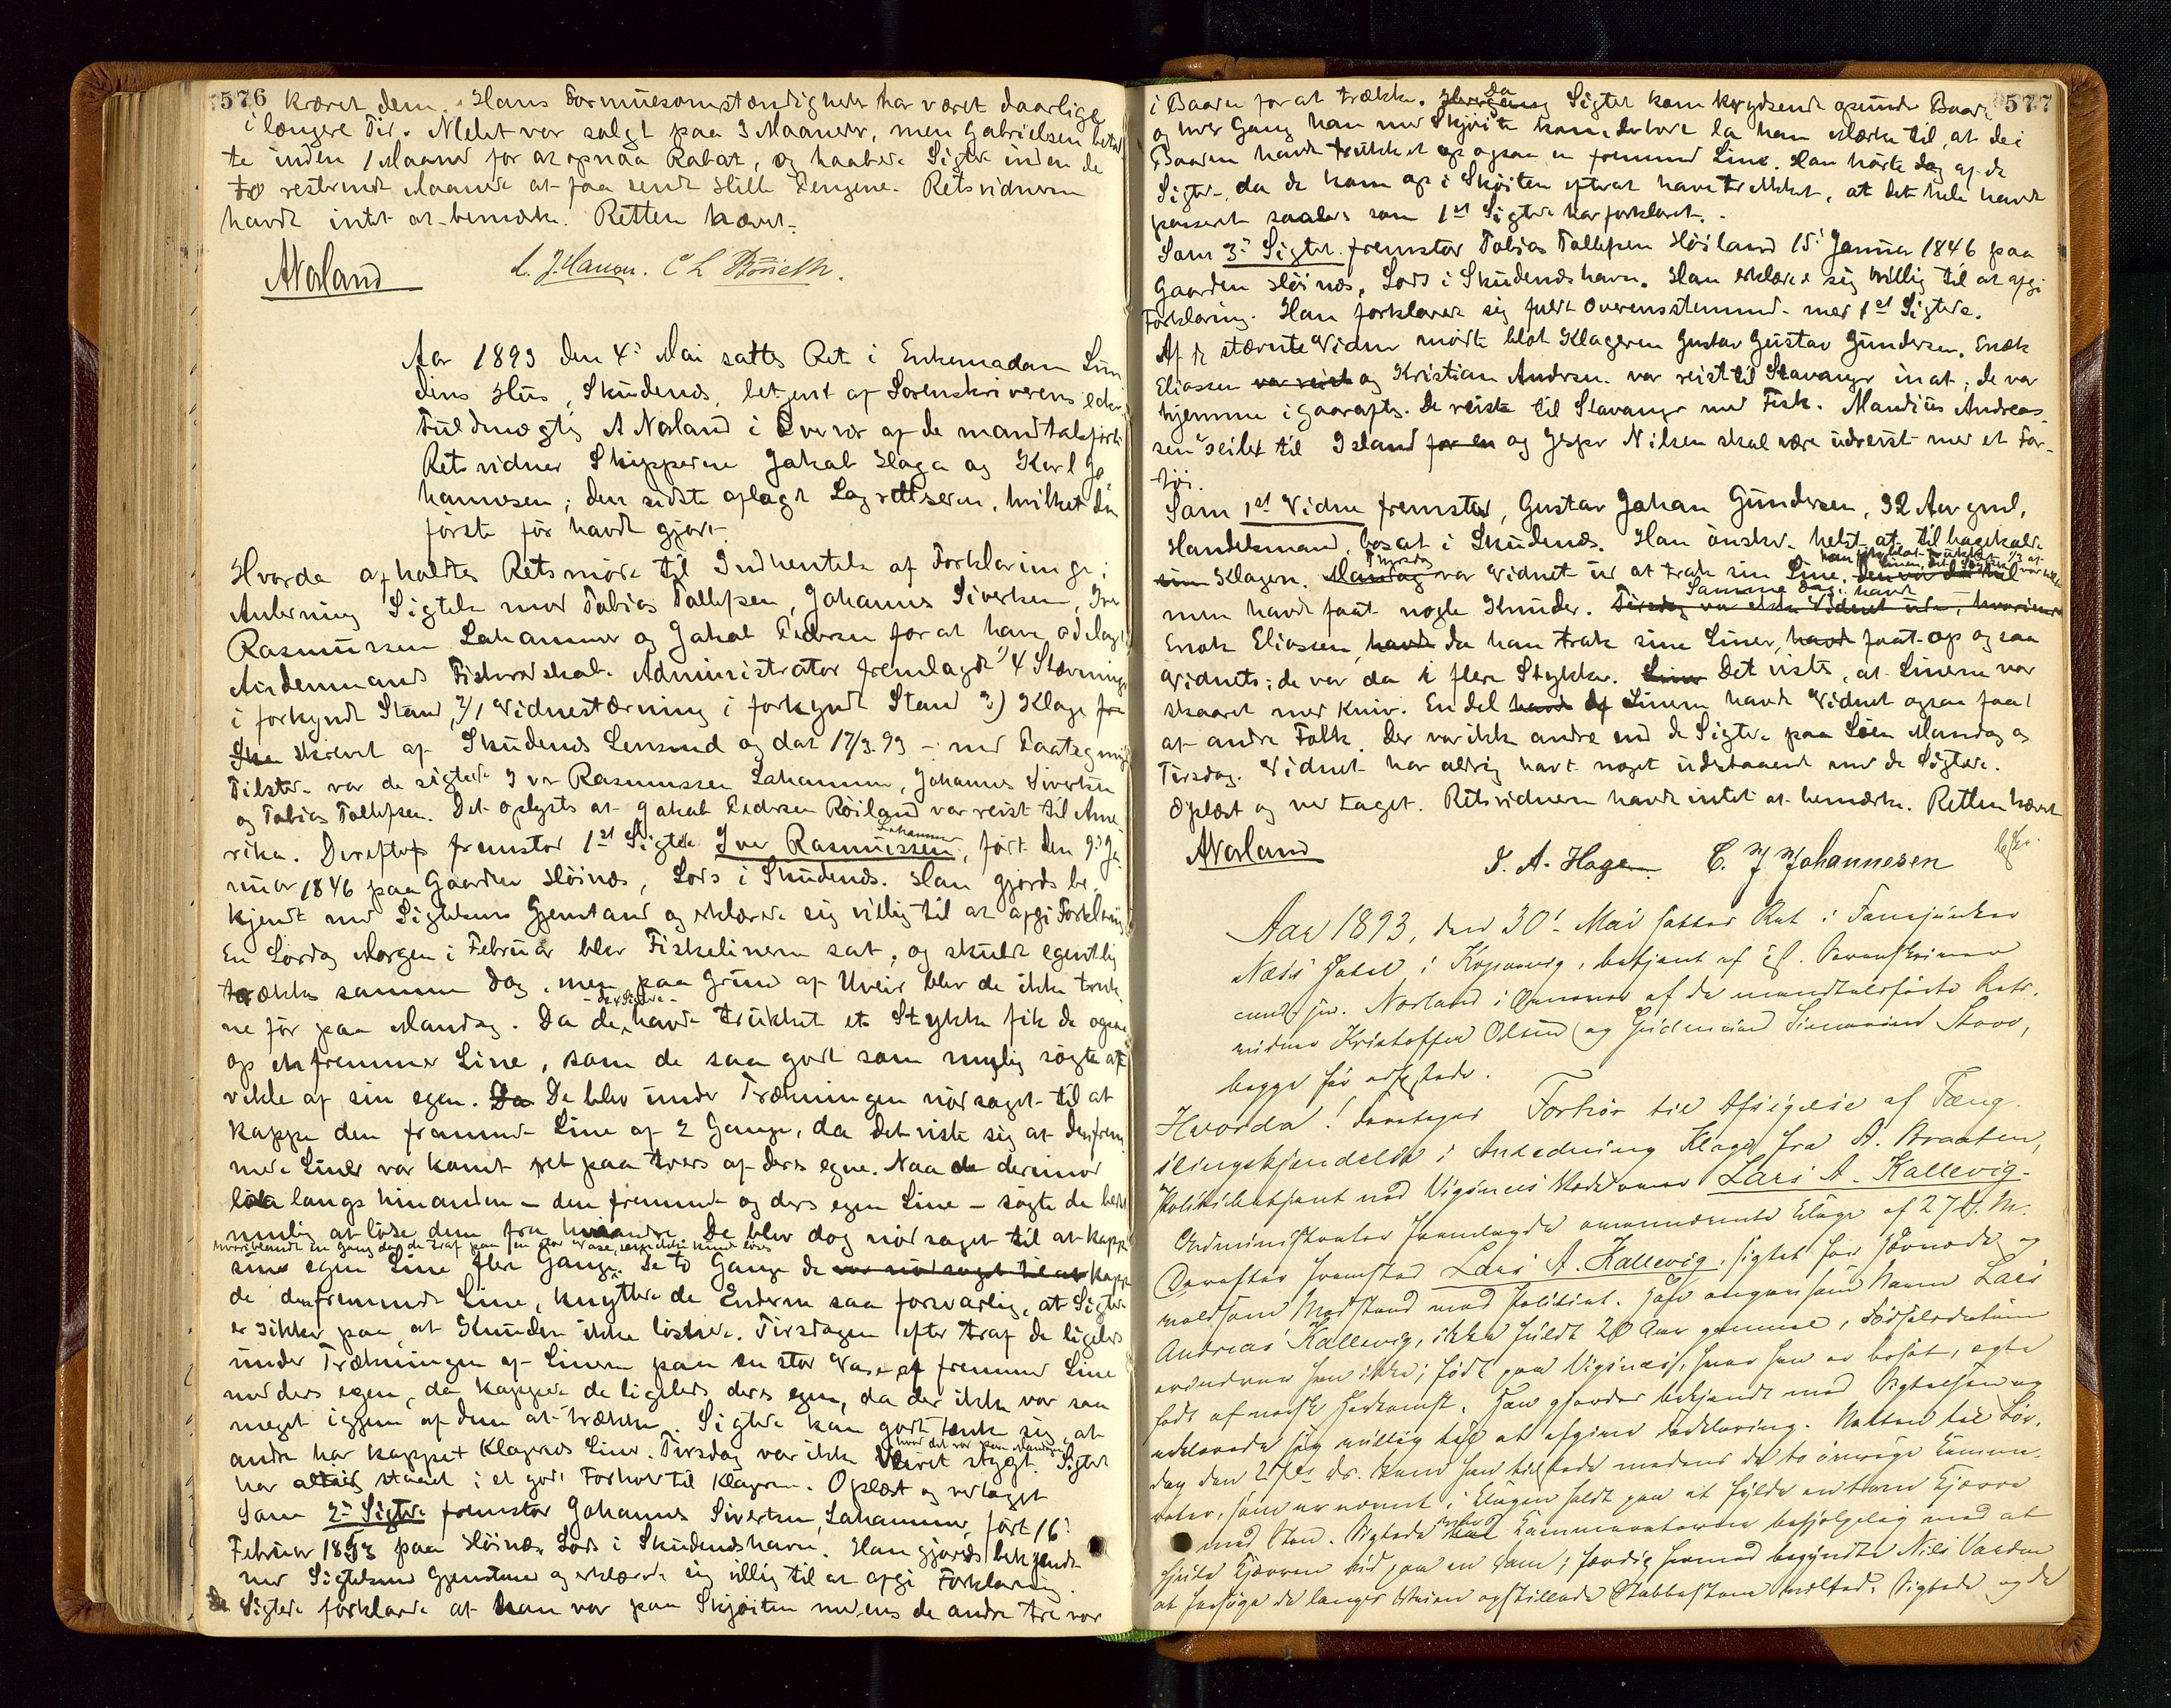 576
krævet dem. Hans Formuesomstændigheder har været daarlige
i længere Tid. Melet var solgt paa 3 Maaneder, men Gabrielsen betal
te inden 1 Maaned for at opnaa Rabat, og haabede Sigtede inden de
to resterende Maaneder at faa sendt Hille Pengene. Retsvidnerne
havde intet at bemærke. Retten hævet.
A Norland
Aar 1893 den 4de Mai sattes Ret i Enkemadam Lun
dens Hus, Skudenes, betjent af Sorenskriverens edsv.
Fuldmægtig A Norland i Overvær af de mandtalsførte
Retsvidner Skipperne Jakob Haga og Karl Jo
hannesen; den sidste aflagde Lagretteseden, hvilket den
første før havde gjort.
Hvorda afholdtes Retsmøde til Indhentelse af Forklaringer i
Anledning Sigtelse mod Tobias Tollefsen, Johannes Sivertsen, Iver
Rasmussen Lahammer og Jakob Pedersen for at have ødelagt
Andenmands Fiskeredskab. Administrator fremlagde 1) 4 Stævninger
i forkyndt Stand, 2) 1 Vidnestævning i forkyndt Stand 3) Klage
skrevet af Skudenes Lensmd og dat 17/3 93 - med Paategning
Tilstede var de sigtede Iver Rasmussen Lahammer, Johannes Sivertsen
og Tobias Tollefsen. Det oplystes at Jakob Pedersen Røiland var reist til Ame
rika. Derefter fremstod 1st Sigtede Iver Rasmussen Lahammer, født den 9de Ja
nuar 1846 paa Gaarden Høinæs, Lods i Skudenes. Han gjordes be
kjendt med Sigtelsens Gjenstand og erklærede sig villig til at afgi Forklaring
En Lørdag Morgen i Februar blev Fiskelinerne sat, og skulde egentlig
trækkes samme Dag, men paa Grund af Uveir blev de ikke truk
ne før paa Mandag. Da de, de 4 Sigtede havde trukket et Stykke fik de ogsaa
op en fremmed Line, som de saa godt som mulig søgte at
vikle af sin egen. Da De blev under Trækningen nødsaget til at
kappe den fremmede Line af 2 Gange, da det viste sig at den frem
mede Line var kommet ret paa tvers af deres egne. Naa de derimod
laa langs hinanden - den fremmede og deres egen Line - søgte de bedst
mulig at løse dem fra hinanden. De blev dog nødsaget til at kappe
hvoriblandt en Gang da de traf paa en stor Vase, som ikke kunde løses
sin egen Line flere Gange. De to Gange de var nødsaget til at kappe
de den fremmede Line, knyttede de Enderne saa forsvarlig, at Sigtede
er sikker paa, at Knuden ikke løsnede. Tirsdagen efter traf de ligeledes
under Trækningen af Linerne paa en stor Vase af fremmed Line
med deres egen, da kappede de ligeledes deres egen, da der ikke var saa
meget igjen af dem at trække. Sigtede kan godt tænke sig, at
andre har kappet Klagerens Liner. Tirsdag var ikke Veiret stygt hvad det var paa Mandagen. Sigtede
har altid staaet i et godt Forhold til Klageren. Oplæst og vedtaget
Som 2den Sigtede fremstod Johannes Sivertsen, Lahammer, født 16de
Februar 1853 paa Høinæs, Lods i Skudeneshavn. Han gjordes bekjendt
med Sigtelsens Gjenstand og erklærede sig villig til at afgi Forklaring.
Sigtede forklarede at han var paa Skjøiten medens de andre tre var
577
i Baaden for at trække. Da Sigtet kom krydsende ogsaa Baaden
og hver Gang han med Skjøiten kom dem la han Mærke til, at de i
Baaden havde trukket op ogsaa en fremmed Line. Han hørte dog af de
Sigtede, da de kom op i Skøiten efterat have trukket, at det hele havde
passeret saaledes som 1st Sigtede har forklaret.
Som 3de Sigtet fremstod Tobias Tollefsen Høiland 15de Januar 1846 paa
Gaarden Høinæs, Lods i Skudeneshavn. Han erklærede sig villig til at afgi
Forklaring. Han forklarede sig fuldt overensstemmende med 1st Sigtede.
Af de stævnte Vidner mødte blot Klageren Gustav Gustav Gundersen. Enok
Eliassen var reist og Kristian Andrsen var reist til Stavanger inat; de var
hjemme igaaraftes. De reiste til Stavanger med Fisk. Mandius Andreas
sen seilet til Island for en og Jesper Nilsen skal være udreist med et Far
tøi.
Som 1st Vidne fremstod, Gustav Johan Gundersen, 32 Aar gml,
Handelsmand, bosat i Skudenes. Han ønsker helst at tilbagekalde
sin Klagen. Mandag Thorsdag var Vidnet ud at trak sin Line,
men havde faat nogle Knuder. Samme Dag havde
Enok Eliassen, havde da han trak sine Liner, havde faat op ogsaa
Vidnets; de var da i flere Stykker. Liner Det viste, at Linerne var
skaaret med Kniv. En del havde af Linerne havde Vidnet ogsaa faat
af andre Folk. Der var ikke andre end de Sigtede paa Søen Mandag og
Tirsdag. Vidnet har aldrig havt noget udestaaende med de Sigtede.
Oplæst og vedtaget. Retsvidnerne havde intet at bemærke. Retten hævet
A Norland
J. A. Haga. C. J. Johannesen
Aar 1893, den 30te Mai sattes Ret i Fanejunker
Næss Hotel i Kopervig, betjent af cst. Sorenskriver
cand. jur. Norland i Overvær af de mandtalsførte Rets-
vidner Kristoffer Olsen og Gudmund Simonsen Stave,
begge før edfæstede.
Hvorda! foretoges Forhør til Afsigelse af Fæng-
slingskjendelse i Anledning Klage fra A. Braaten,
Politibetjent ved Vigsnæs Værk over Lars A. Kallevig.
Administrator fremlagde omnævnte Klage af 27 d. M.
Derefter fremstod Lars A. Kallevig, sigtet for
voldsom Modstand mod Politiet. Han angav sin Navn Lars
Andreas Kallevig, ikke fuldt 20 Aar gammel, Fødselsdatum
erindrer han ikke; født paa Vigsnæs, hvor han er bosat, egte
født af norsk Herkomst. Han gjordes bekjendt med Sigtelsen og
erklærede sig villig til at afgive Forklaring. Natten til Lør-
dag den 27de ds. kom han tilstede medens de to øvrige Kamme-
rater, som er nævnt i Klagen holdt paa at fylde en tom Kjærre
med Sten. Sigtede var Kammeraterne behjælpelig med at
skyde Kjærren hid paa en Dam; færdig hermed begyndte Nils Varden
at forsøge de langs Veien opstillede Stabbestene veltet. Sigtede og de